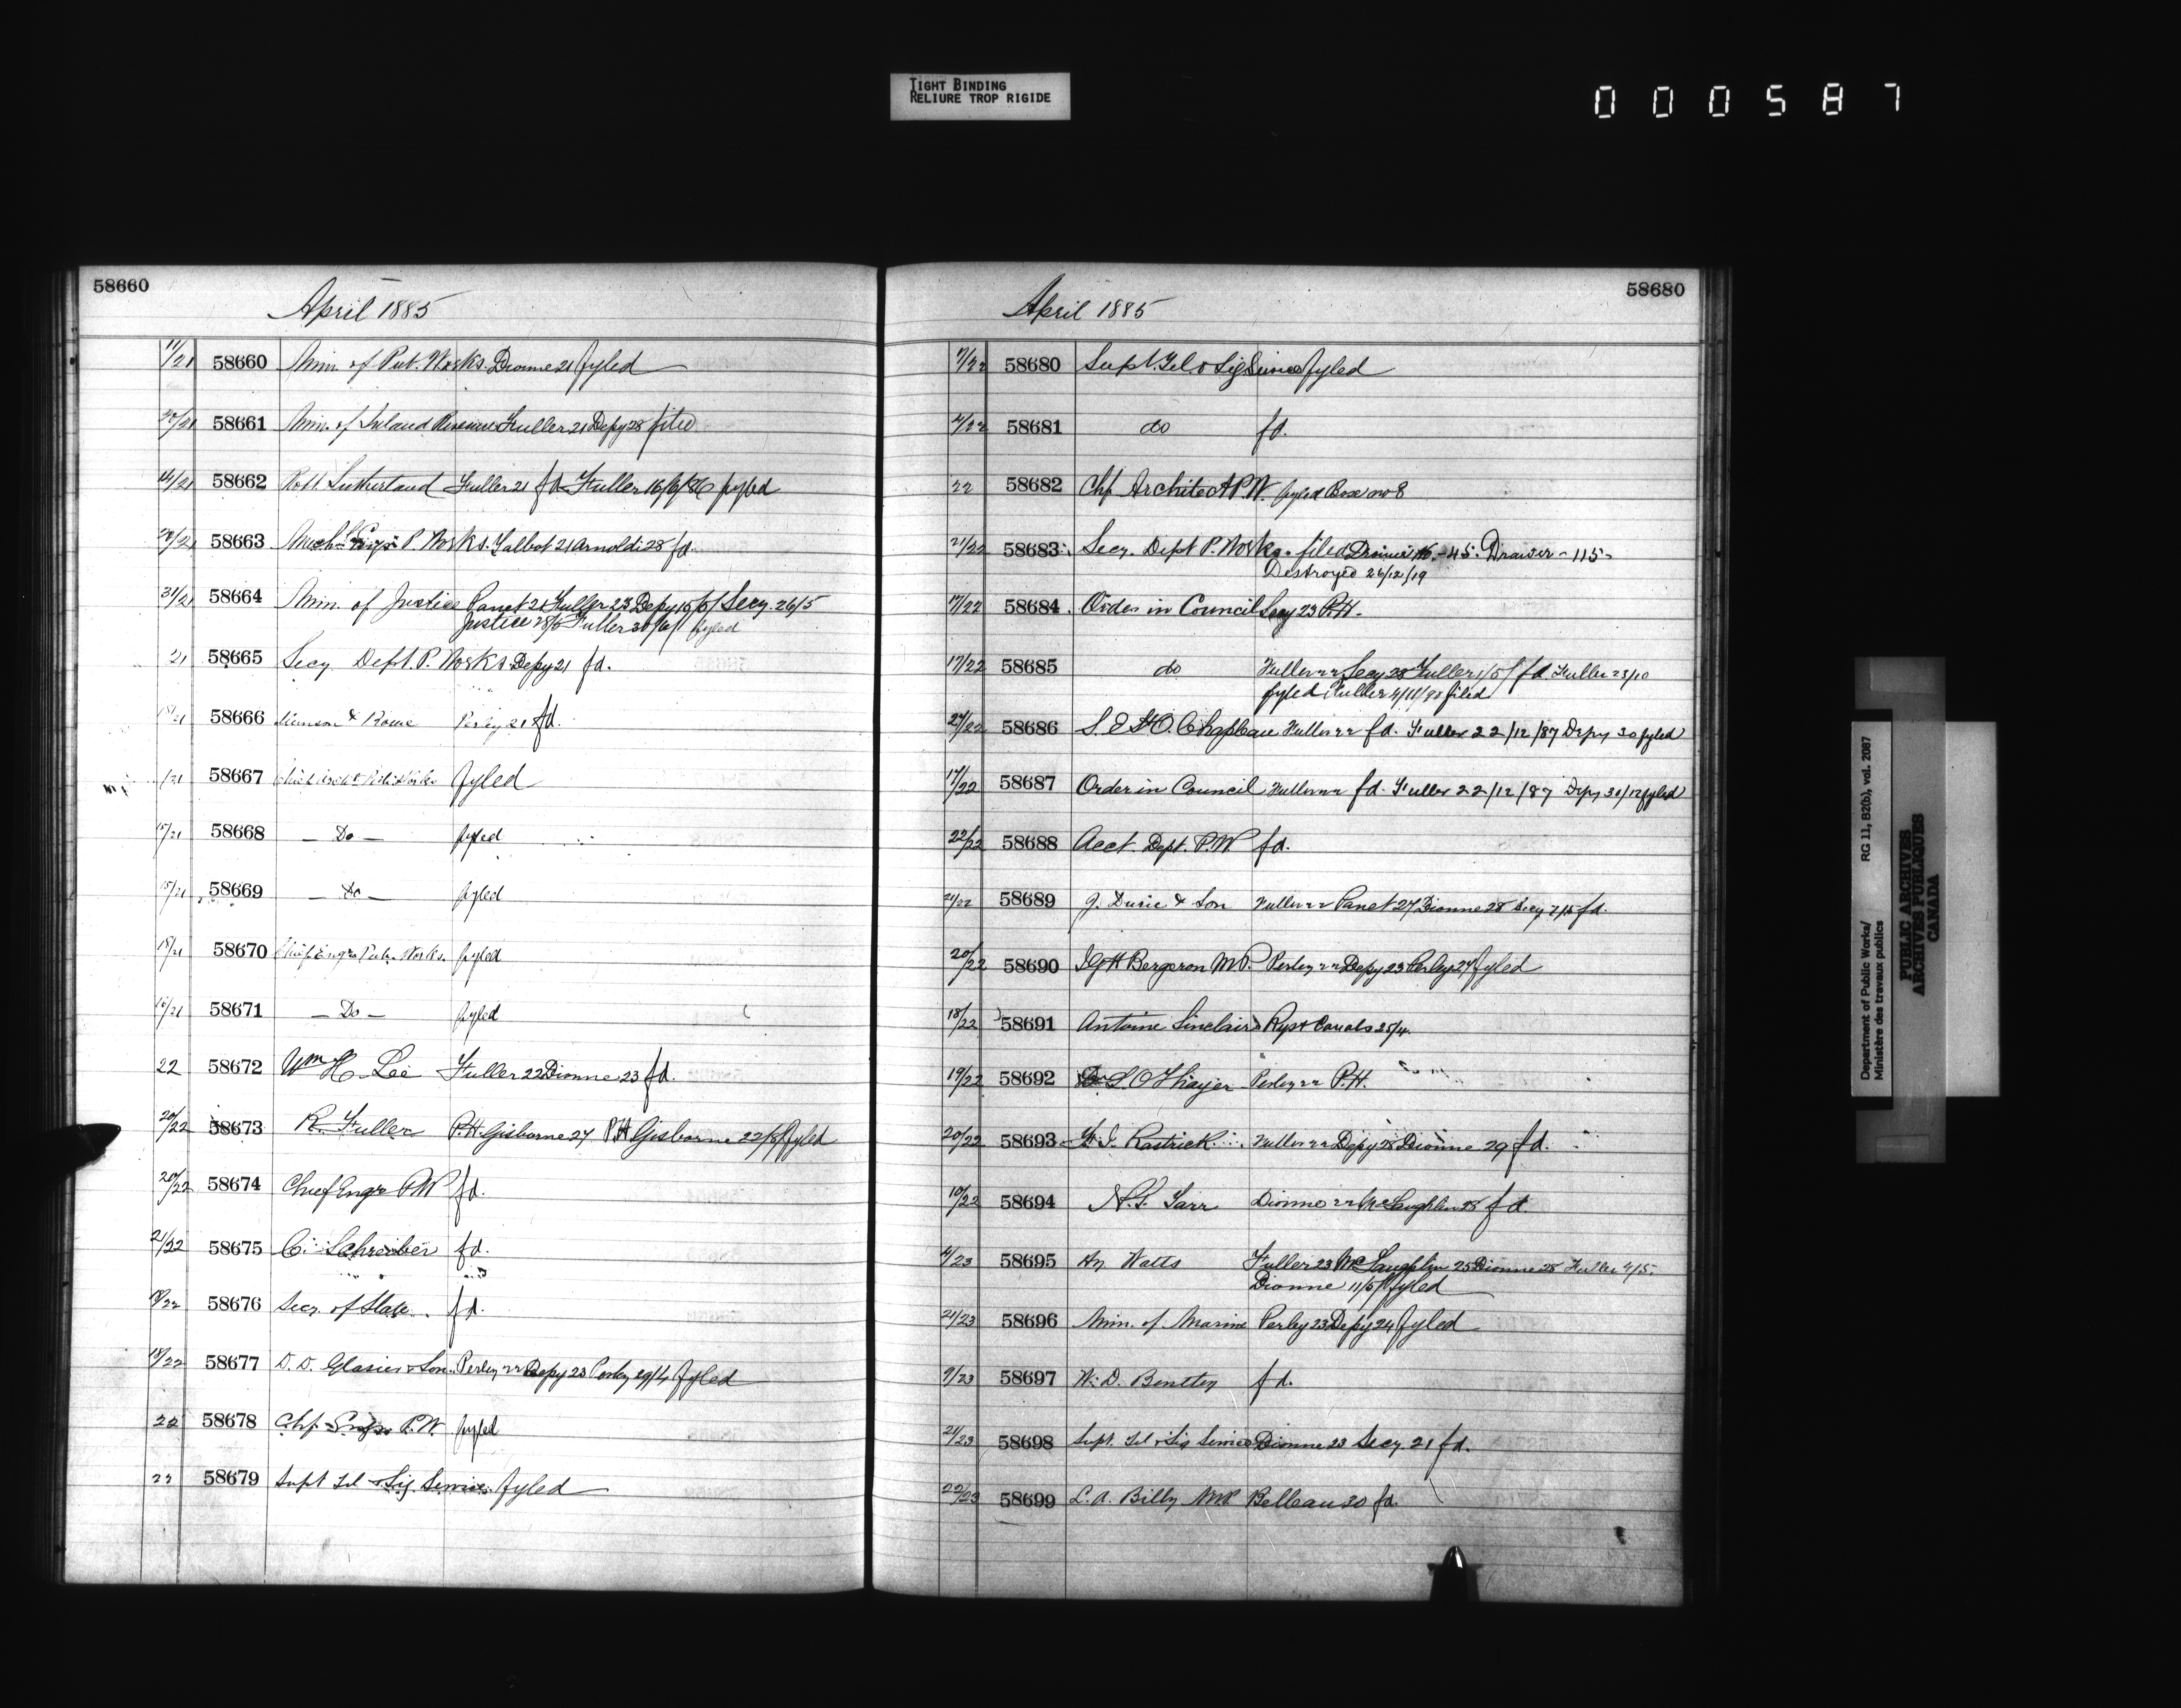 TIGHT BINDING
RELIURE TROP RIGIDE
000587
58660
April 1885
11/21 58660 Min. of Pub. Works. Dionne 21 fyled
20/21 58661 Min. of Inland Revenue Fuller 21 Depy 28 filed
14/21 58662 Robt Sutherland Fuller 21 fd Fuller 16/6/86 fyled
20/21 58663 Mechl Engr P. Works. Talbot 21 Arnoldi 28 fd.
31/21 58664 Min. of Justice Panet 21 Fuller 23 Depy 15/5/ Secy. 26/5
Justice 28/5 Fuller 30/6/ fyled
21 58665 Secy Dept. P. Works Depy 21 fd.
18/21 58666 Munson & Rowe Perley 21 fd.
/21 58667 Chief Archt Pub. Works fyled
15/21 58668 — Do — fyled
15/21 58669 — Do — fyled
18/21 58670 Chief Engr Pub. Works. fyled
16/21 58671 — Do — fyled
22 58672 Wm H. Lee Fuller 22 Dionne 23 fd.
20/22 58673 R. Fuller P.H. Gisborne 27 P.H Gisborne 22/8/ fyled
20/22 58674 Chief Engr P.W fd.
21/22 58675 C. Schreiber fd.
58676 Secy. of State. fd.
18/22 58677 D. D. Glasier & Son. Perley 22 Depy 23 Perley 29/4 fyled
22 58678 Chf Engr P.W. fyled
22 58679 Supt Tel & Sig Service. fyled
58680
April 1885
58680 Supt. Tel. & Sig Service fyled
58681 do fd.
22 58682 Chf Architect P.W. fyled Box no 8
21/22 58683 Secy. Dept P. Works. filed Drawer 45. Drawer - 115-
Destroyed 26/12/19
17/22 58684 Order in Council Secy 23 P.H.
17/22 58685 do Fuller 22 Secy 28 Fuller 1/5/ fd Fuller 23/10
fyled Fuller 4/11/98 filed
58686 S. E St O. Chapleau Fuller 22 fd. Fuller 22/12/87 Depy 30 fyled
17/22 58687 Order in Council Fuller 22 fd. Fuller 22/12/87 Depy 30/12 fyled
22/22 58688 Acct. Dept. P.W fd.
21/22 58689 J. Durie & Son Fuller 22 Panet 27 Dionne 28 Secy 7/5 fd.
20/22 58690 J G H Bergeron M.P. Perley 22 Depy 23 Perley 27 fyled
18/22 58691 Antoine Sinclair Rys & Canals 25/4.
19/22 58692 S. O Thayer Perley 22 P.H.
20/22 58693 Rastrick Fuller 22 Depy 28 Dionne 29 fd.
10/22 58694 N. S. Tarr Dionne 22 McLaughlin 28 fd.
4/23 58695 Hy Watts Fuller 23 McLaughlin 25 Dionne 28 Fuller 4/5.
Dionne 11/5/ fyled
21/23 58696 Min. of Marine Perley 23 Depy 24 fyled
9/23 58697 W. D. Bentley fd.
21/23 58698 Supt. Tel & Sig Service Dionne 23 Secy. 21 fd.
22/23 58699 L. A. Billy M.P Belleau 30 fd.
Department of Public Works/ RG 11, B2(b), vol. 2087
Ministère des travaux publics
PUBLIC ARCHIVES
ARCHIVES PUBLIQUES
CANADA